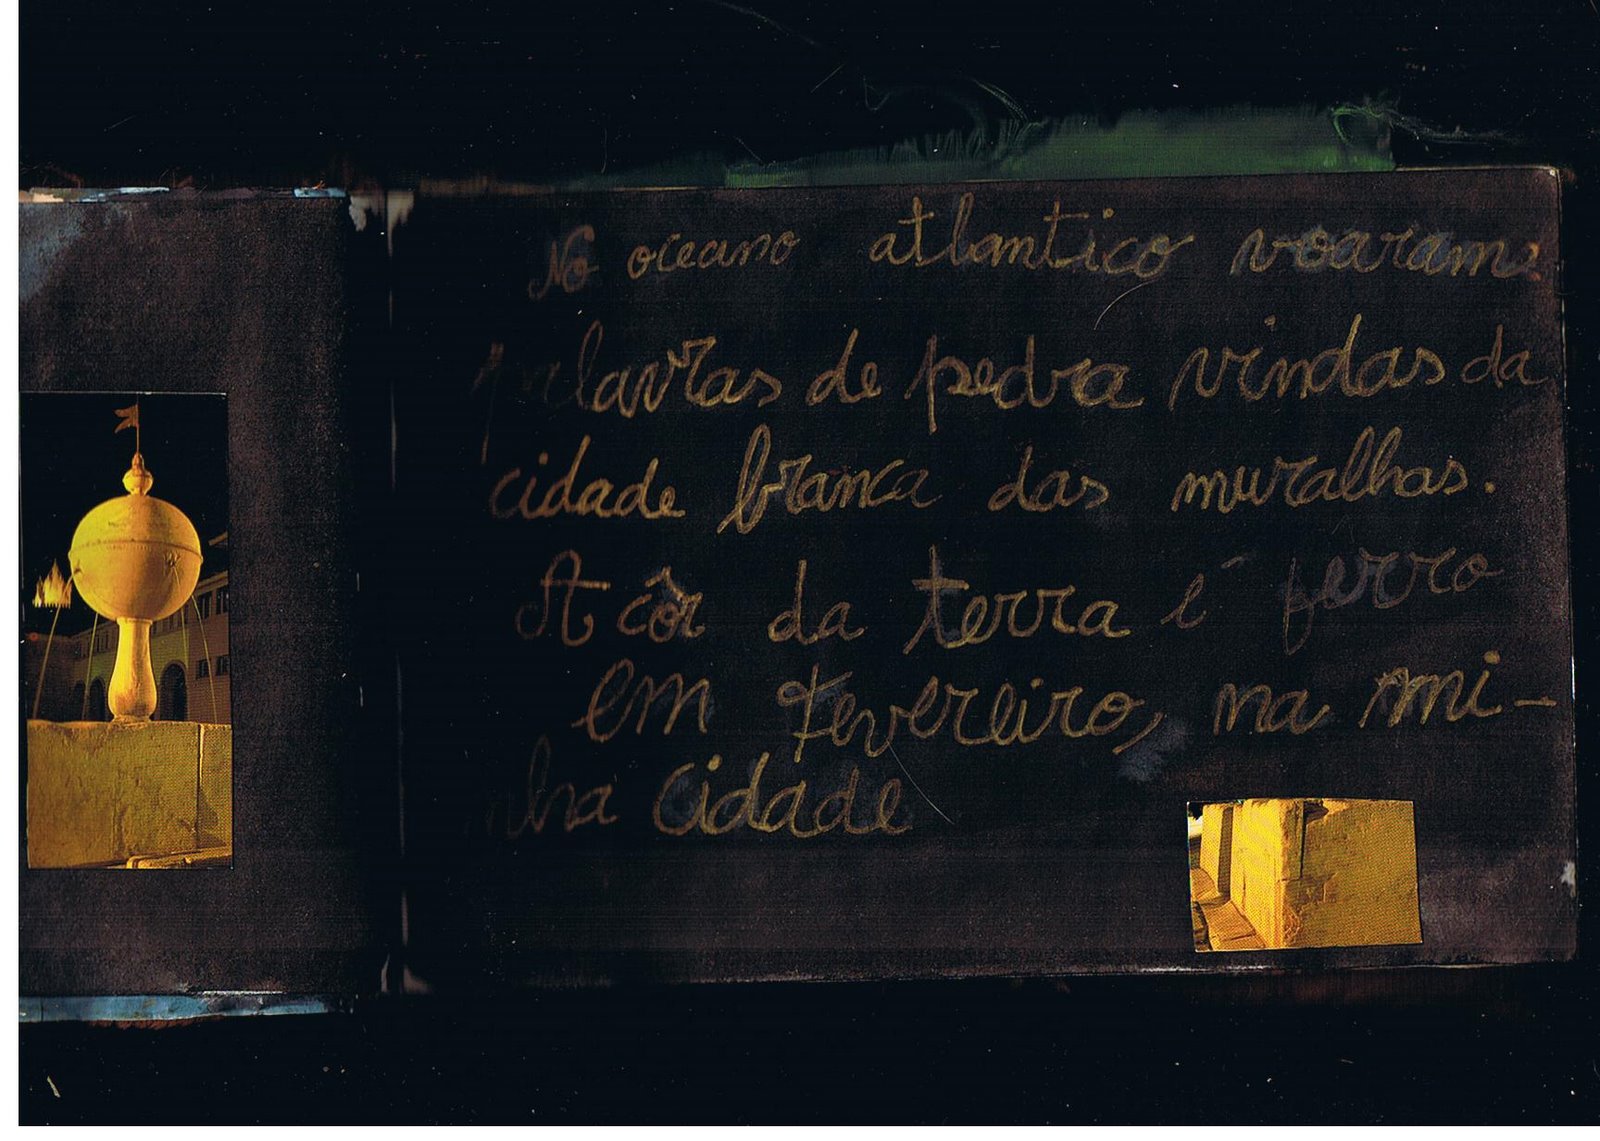 No oceano atlantico voaram
palavras de pedra vindas da
cidade branca das muralhas.
A côr da terra é ferro
em Fevereiro, na mi-
nha cidade